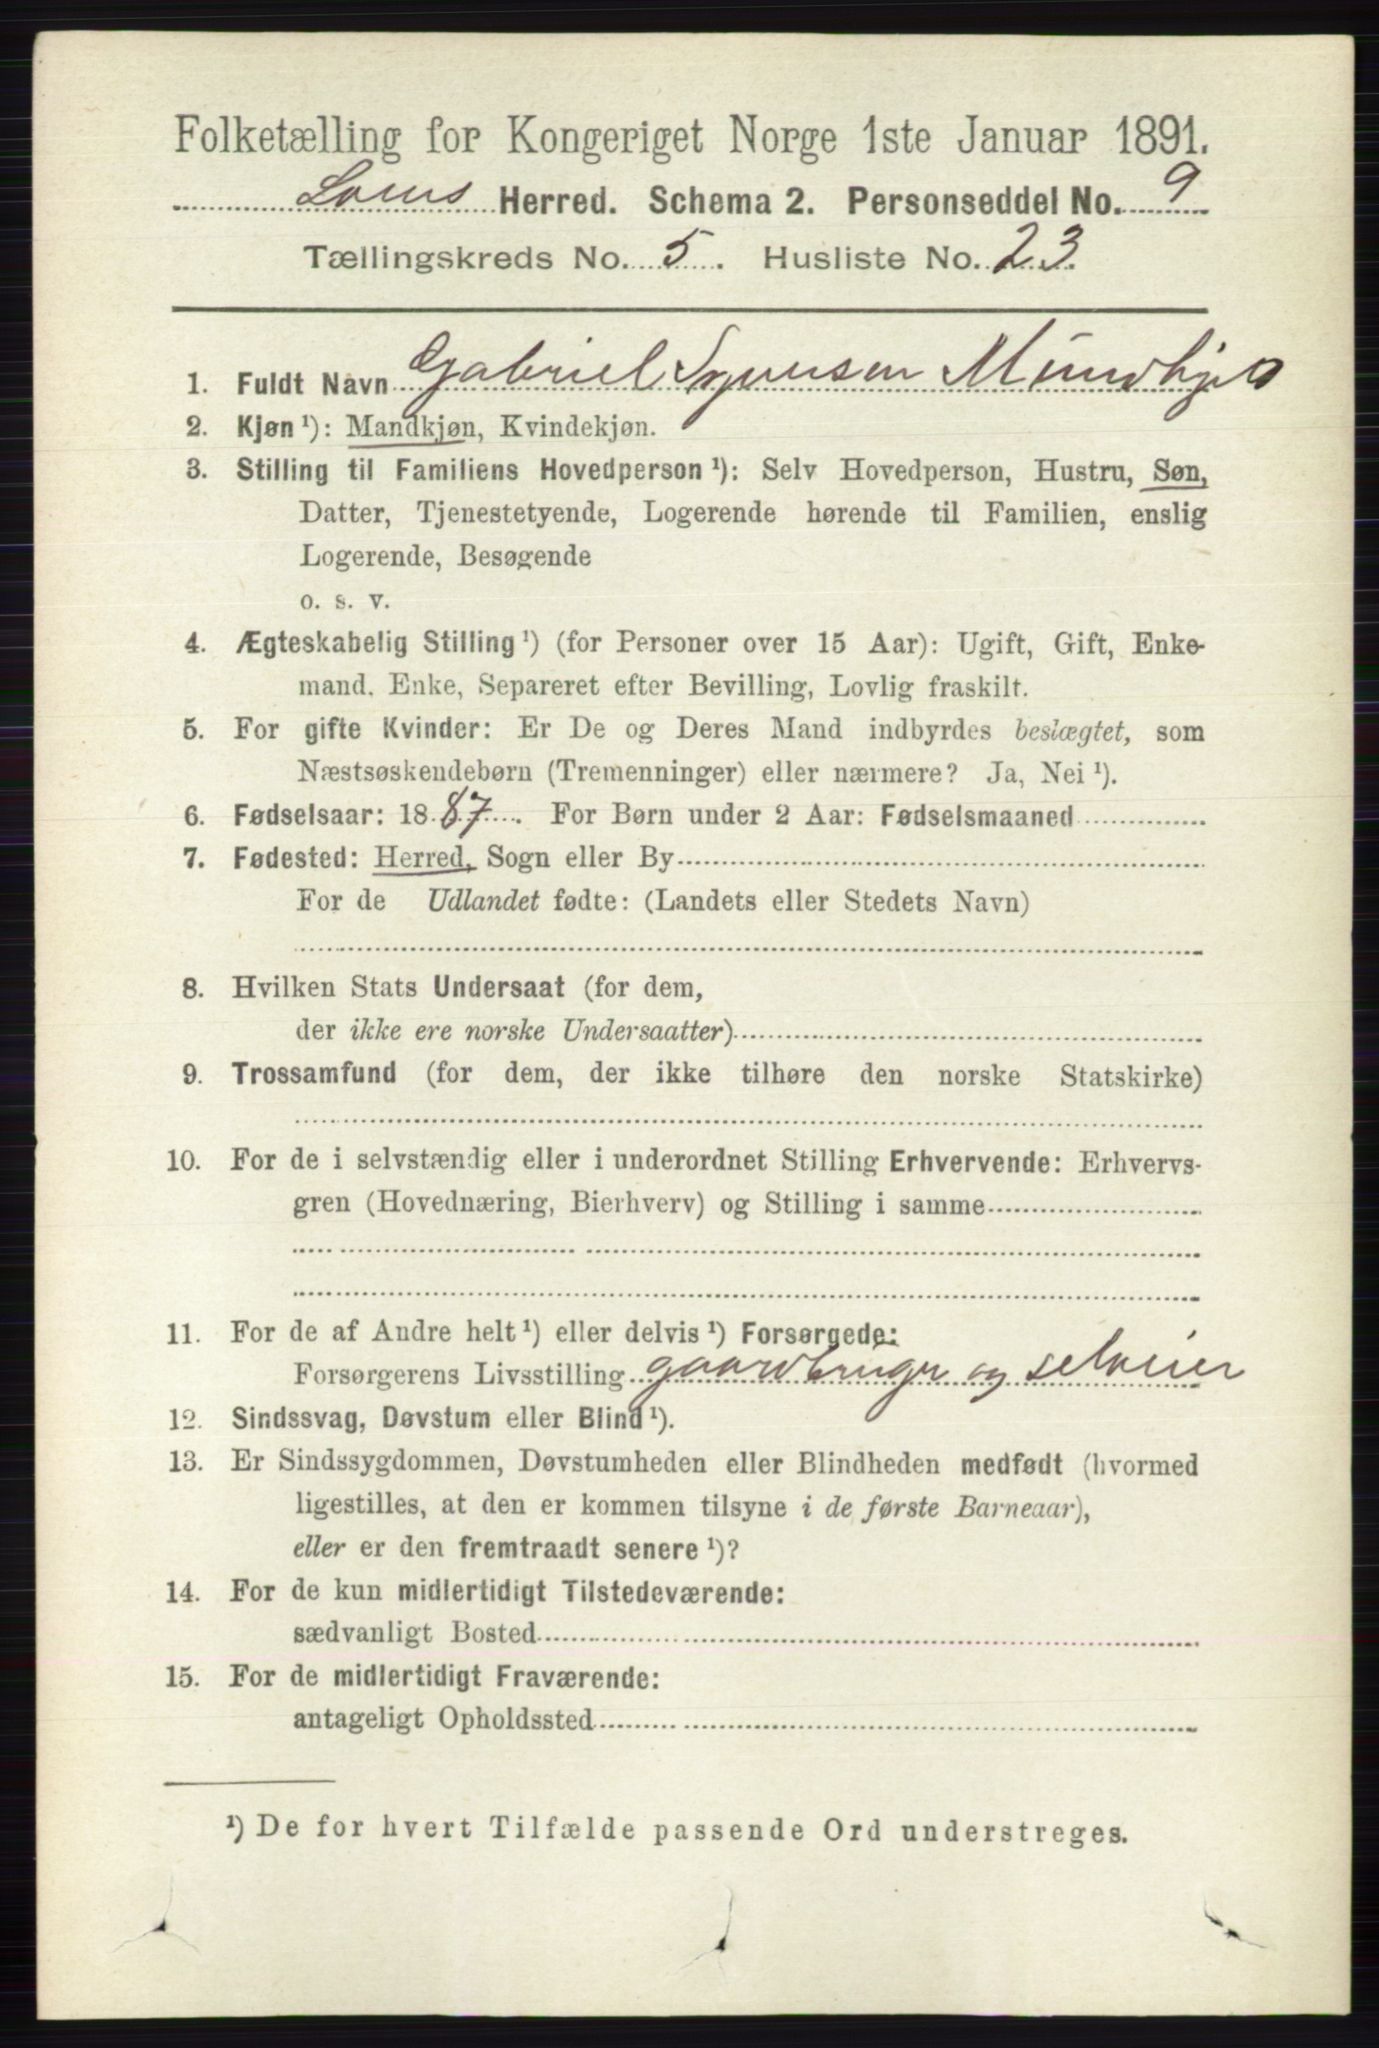 Folketælling for Kongeriget Norge 1ste Januar 1891.
Loms Herred. Schema 2. Personseddel No. 9
Tællingskreds No. 5. Husliste No. 23.
1. Fuldt Navn Gabriel Syversen
2. Kjøn ¹): Mandkjøn, Kvindekjøn.
3. Stilling til Familiens Hovedperson ¹): Selv Hovedperson, Hustru, Søn,
Datter, Tjenestetyende, Logerende hørende til Familien, enslig
Logerende, Besøgende
o. s. v.
4. Ægteskabelig Stilling ¹) (for Personer over 15 Aar): Ugift, Gift, Enke-
mand, Enke, Separeret efter Bevilling, Lovlig fraskilt.
5. For gifte Kvinder: Er De og Deres Mand indbyrdes beslægtet, som
Næstsøskendebørn (Tremenninger) eller nærmere? Ja, Nei ¹).
6. Fødselsaar: 1887. For Børn under 2 Aar: Fødselsmaaned
7. Fødested: Herred, Sogn eller By
For de Udlandet fødte: (Landets eller Stedets Navn)
8. Hvilken Stats Undersaat (for dem,
der ikke ere norske Undersaatter)
9. Trossamfund (for dem, der ikke tilhøre den norske Statskirke)
10. For de i selvstændig eller i underordnet Stilling Erhvervende: Erhvervs-
gren (Hovednæring, Bierhverv) og Stilling i samme
11. For de af Andre helt ¹) eller delvis ¹) Forsørgede:
Forsørgerens Livsstilling gaardbruger og selveier
12. Sindssvag, Døvstum eller Blind ¹).
13. Er Sindssygdommen, Døvstumheden eller Blindheden medfødt (hvormed
ligestilles, at den er kommen tilsyne i de første Barneaar),
eller er den fremtraadt senere ¹)?
14. For de kun midlertidigt Tilstedeværende:
sædvanligt Bosted
15. For de midlertidigt Fraværende:
antageligt Opholdssted
¹) De for hvert Tilfælde passende Ord understreges.